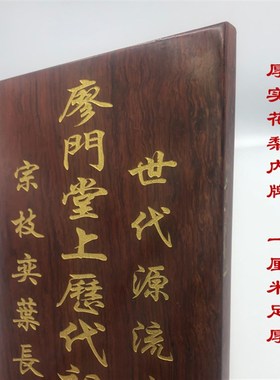 厚实花梨内牌 一厘米足厚
世代源流
廖門堂上歷代
宗枝奕葉長